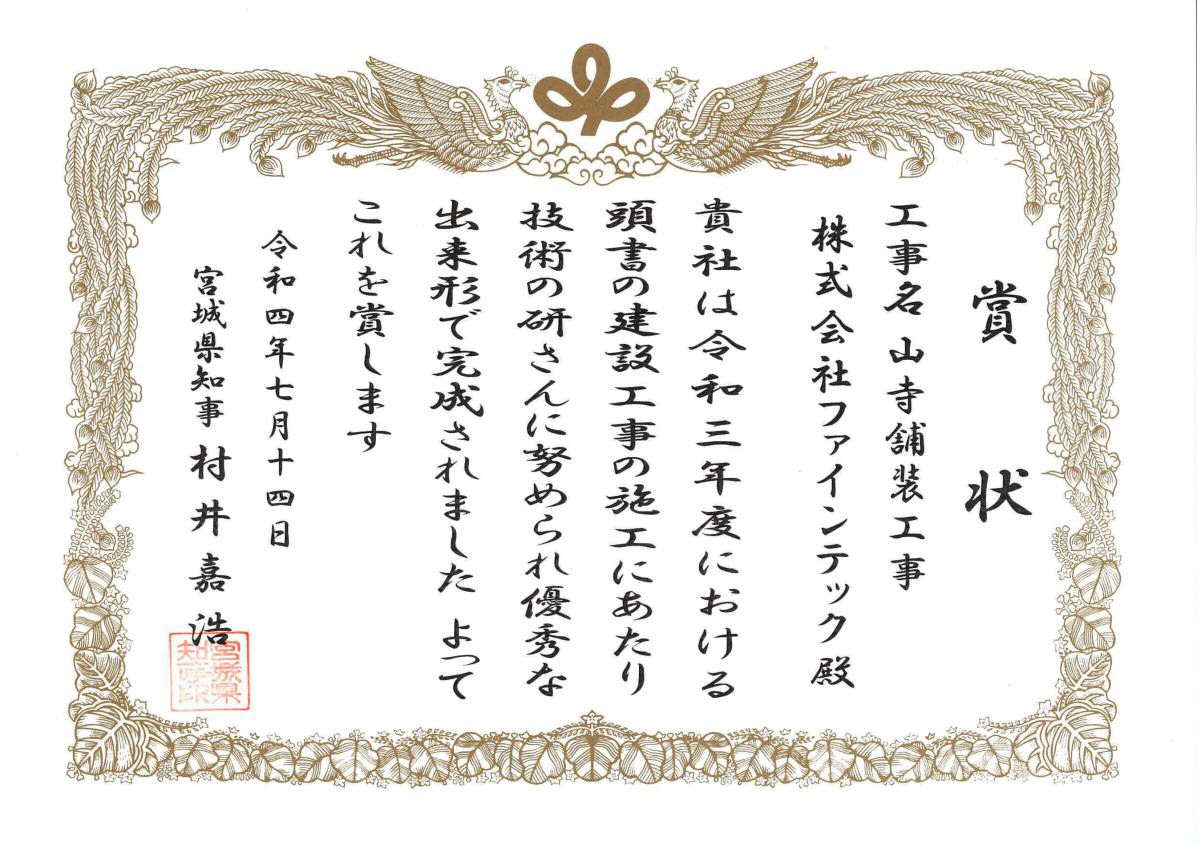 賞状
工事名 山寺舗装工事
株式会社ファインテック殿
貴社は令和三年度における
頭書の建設工事の施工にあたり
技術の研さんに努められ優秀な
出来形で完成されました よって
これを賞します
令和四年七月十四日
宮城県知事 村井嘉浩
宮城県知事印